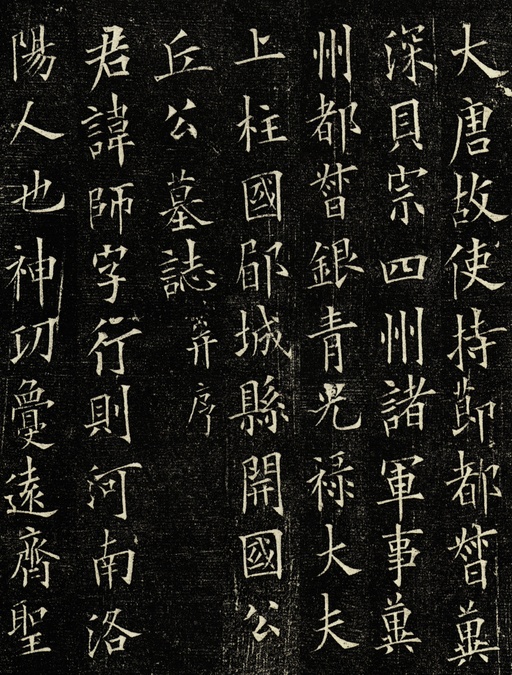 大唐故使持節都督冀
深貝宗四州諸軍事冀
州都督銀青光祿大夫
上柱國郿城縣開國公
丘公墓誌并序
君諱師字行則河南洛
陽人也神功敻遠齊聖